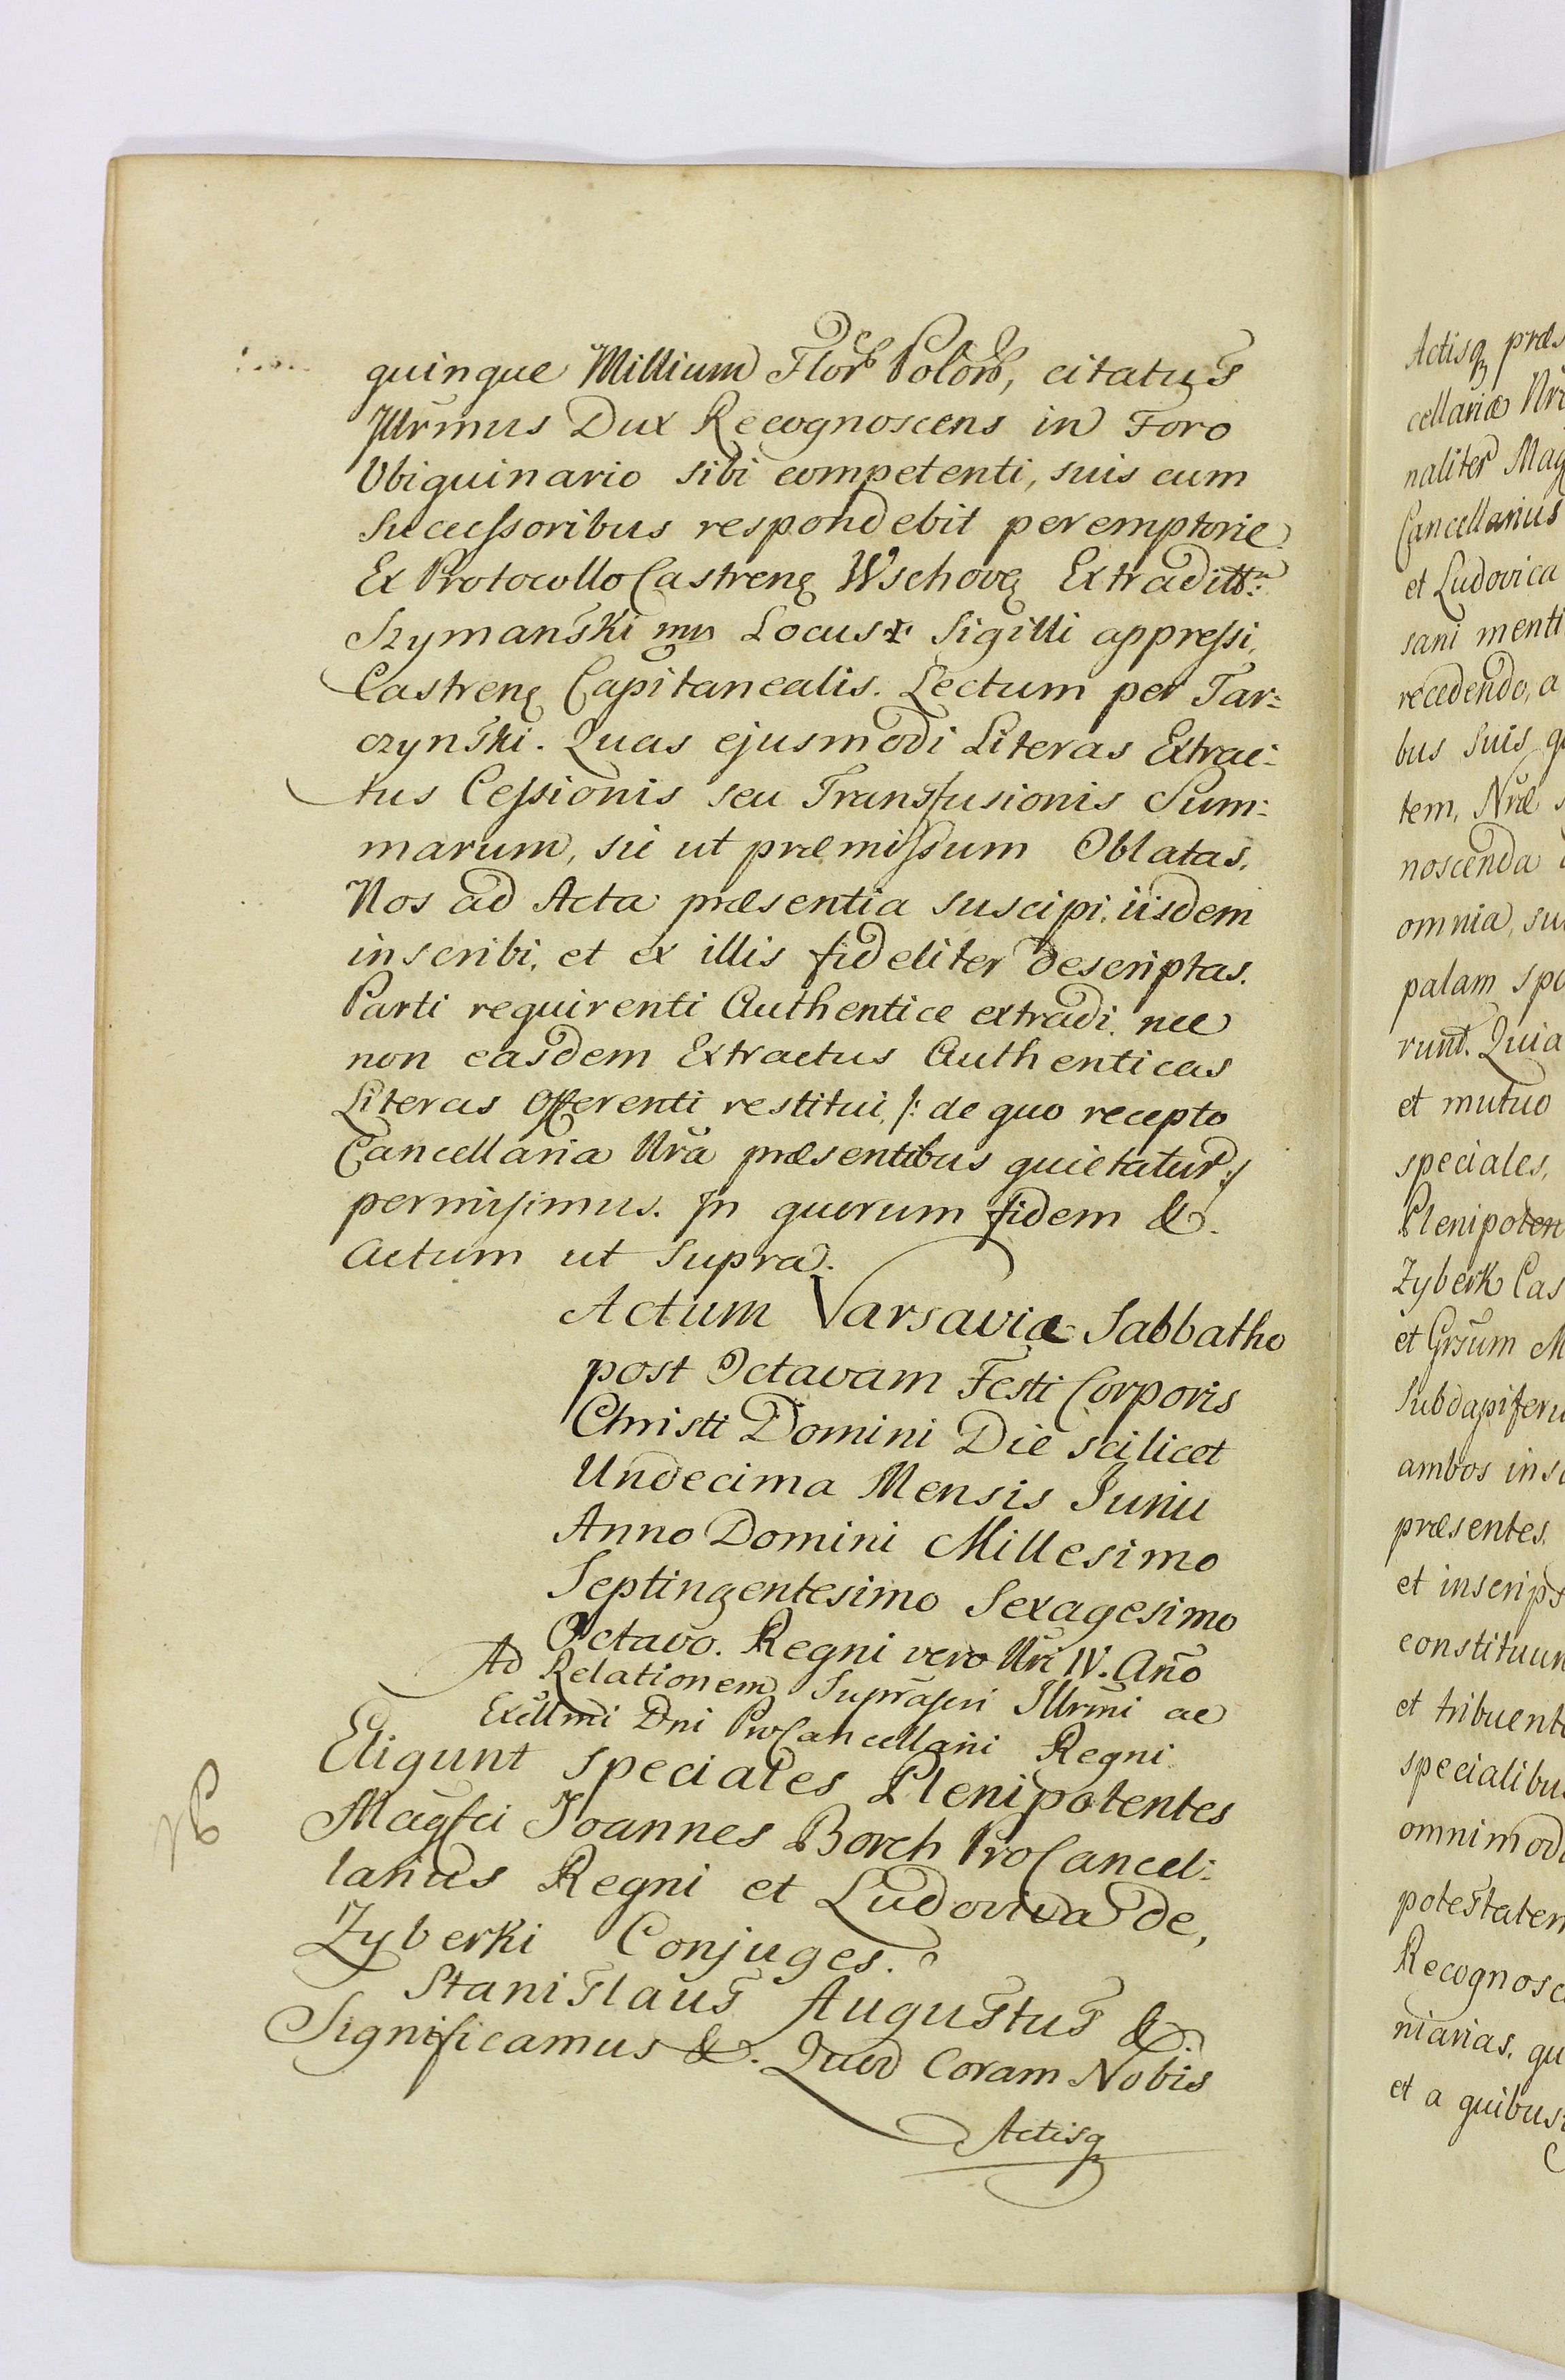 quinque Millium Flor Polon, citatus
Illrmus Dux Recognoscens in Foro
Ubiquinario sibi competenti, suis cum
Successoribus respondebit peremptorie.
Ex Protocollo Castren Wschoven Extraditt
Szymanski mp Locus Sigilli appressi
Castren Capitanealis. Lectum per Tar=
czynski. Quas ejusmodi Literas Extrac=
tus Cessionis seu Transfusionis Sum=
marum, sic ut præmissum Oblatas,
Nos ad Acta præsentia suscipi, iisdem
inscribi, et ex illis fideliter descriptas.
Parti requirenti Authentice extradi, nec
non easdem Extractus Authenticas
Literas Offerenti restitui, /: de quo recepto
Cancellaria Nra præsentibus quietatur :/
permisimus. In quorum fidem &.
Actum ut supra.
Actum Varsaviæ Sabbatho
post Octavam Festi Corporis
Christi Domini Die scilicet
Undecima Mensis Junii
Anno Domini Millesimo
Septingentesimo Sexagesimo
Octavo. Regni vero Nri IV. Año
Ad Relationem Suprascri Illrmi ac
Excllmi Dni ProCancellarii Regni
Eligunt speciales Plenipotentes
Magfci Joannes Borch ProCancel=
larius Regni et Ludovica de,
Zyberki Conjuges.
Stanislaus Augustus &.
Significamus &. Quod Coram Nobis
Actisq
Actisq præs
cellariæ Nræ
naliter Mag
Cancellarius
et Ludovica
sani menti
recedendo, a
bus suis qu
tem, Nræ s
noscenda
omnia, su
palam spo
runt. Quia
et mutuo
speciales,
Plenipoten
Zyberk Cas
et Grsum M
Subdapiferu
ambos inso
præsentes,
et inscrips
constituun
et tribuente
specialibus
omnimoda
potestatem
Recognosce
niarias, qu
et a quibus